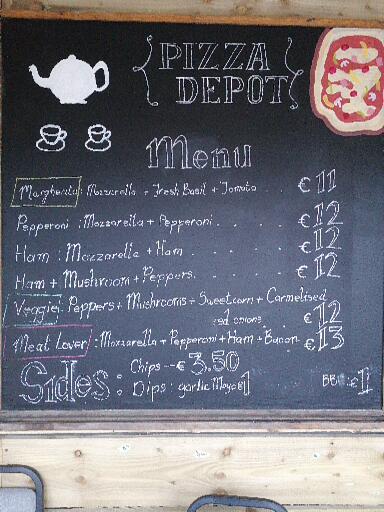 PIZZA
DEPOT
Menu
Margherita: Mozzarella + Fresh Basil + Tomato . €11
Pepperoni : Mozzarella + Pepperoni . . . . . €12
Ham : Mozzarella + Ham . . . . . €12
Ham + Mushroom + Peppers. . . . . €12
Veggie: Peppers + Mushrooms + Sweetcorn + Carmelised
red onions €12
Meat Lover : Mozzarella + Pepperoni + Ham + Bacon €13
Sides: Chips -- €3.50
Dips: garlic Mayo €1
BB €1